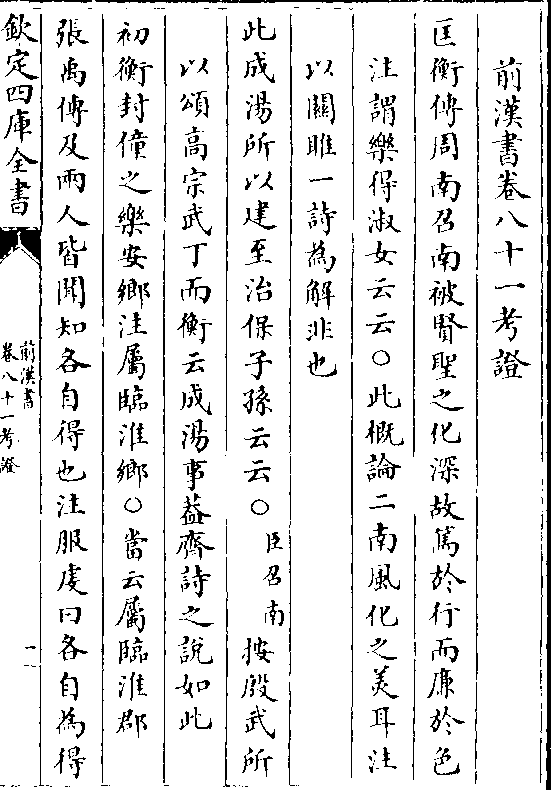 前漢書卷八十一考證
匡衡傳周南召南被賢聖之化深故篤於行而廉於色
注謂樂得淑女云云○此概論二南風化之美耳注
以關雎一詩為解非也
此成湯所以建至治保子孫云云○臣召南按殷武所
以頌高宗武丁而衡云成湯事葢齊詩之說如此
初衡封僮之樂安鄉注屬臨淮鄉○當云屬臨淮郡
張禹傳及兩人皆聞知各自得也注服虔曰各自為得
欽定四庫全書
前漢書
卷八十一考證
一